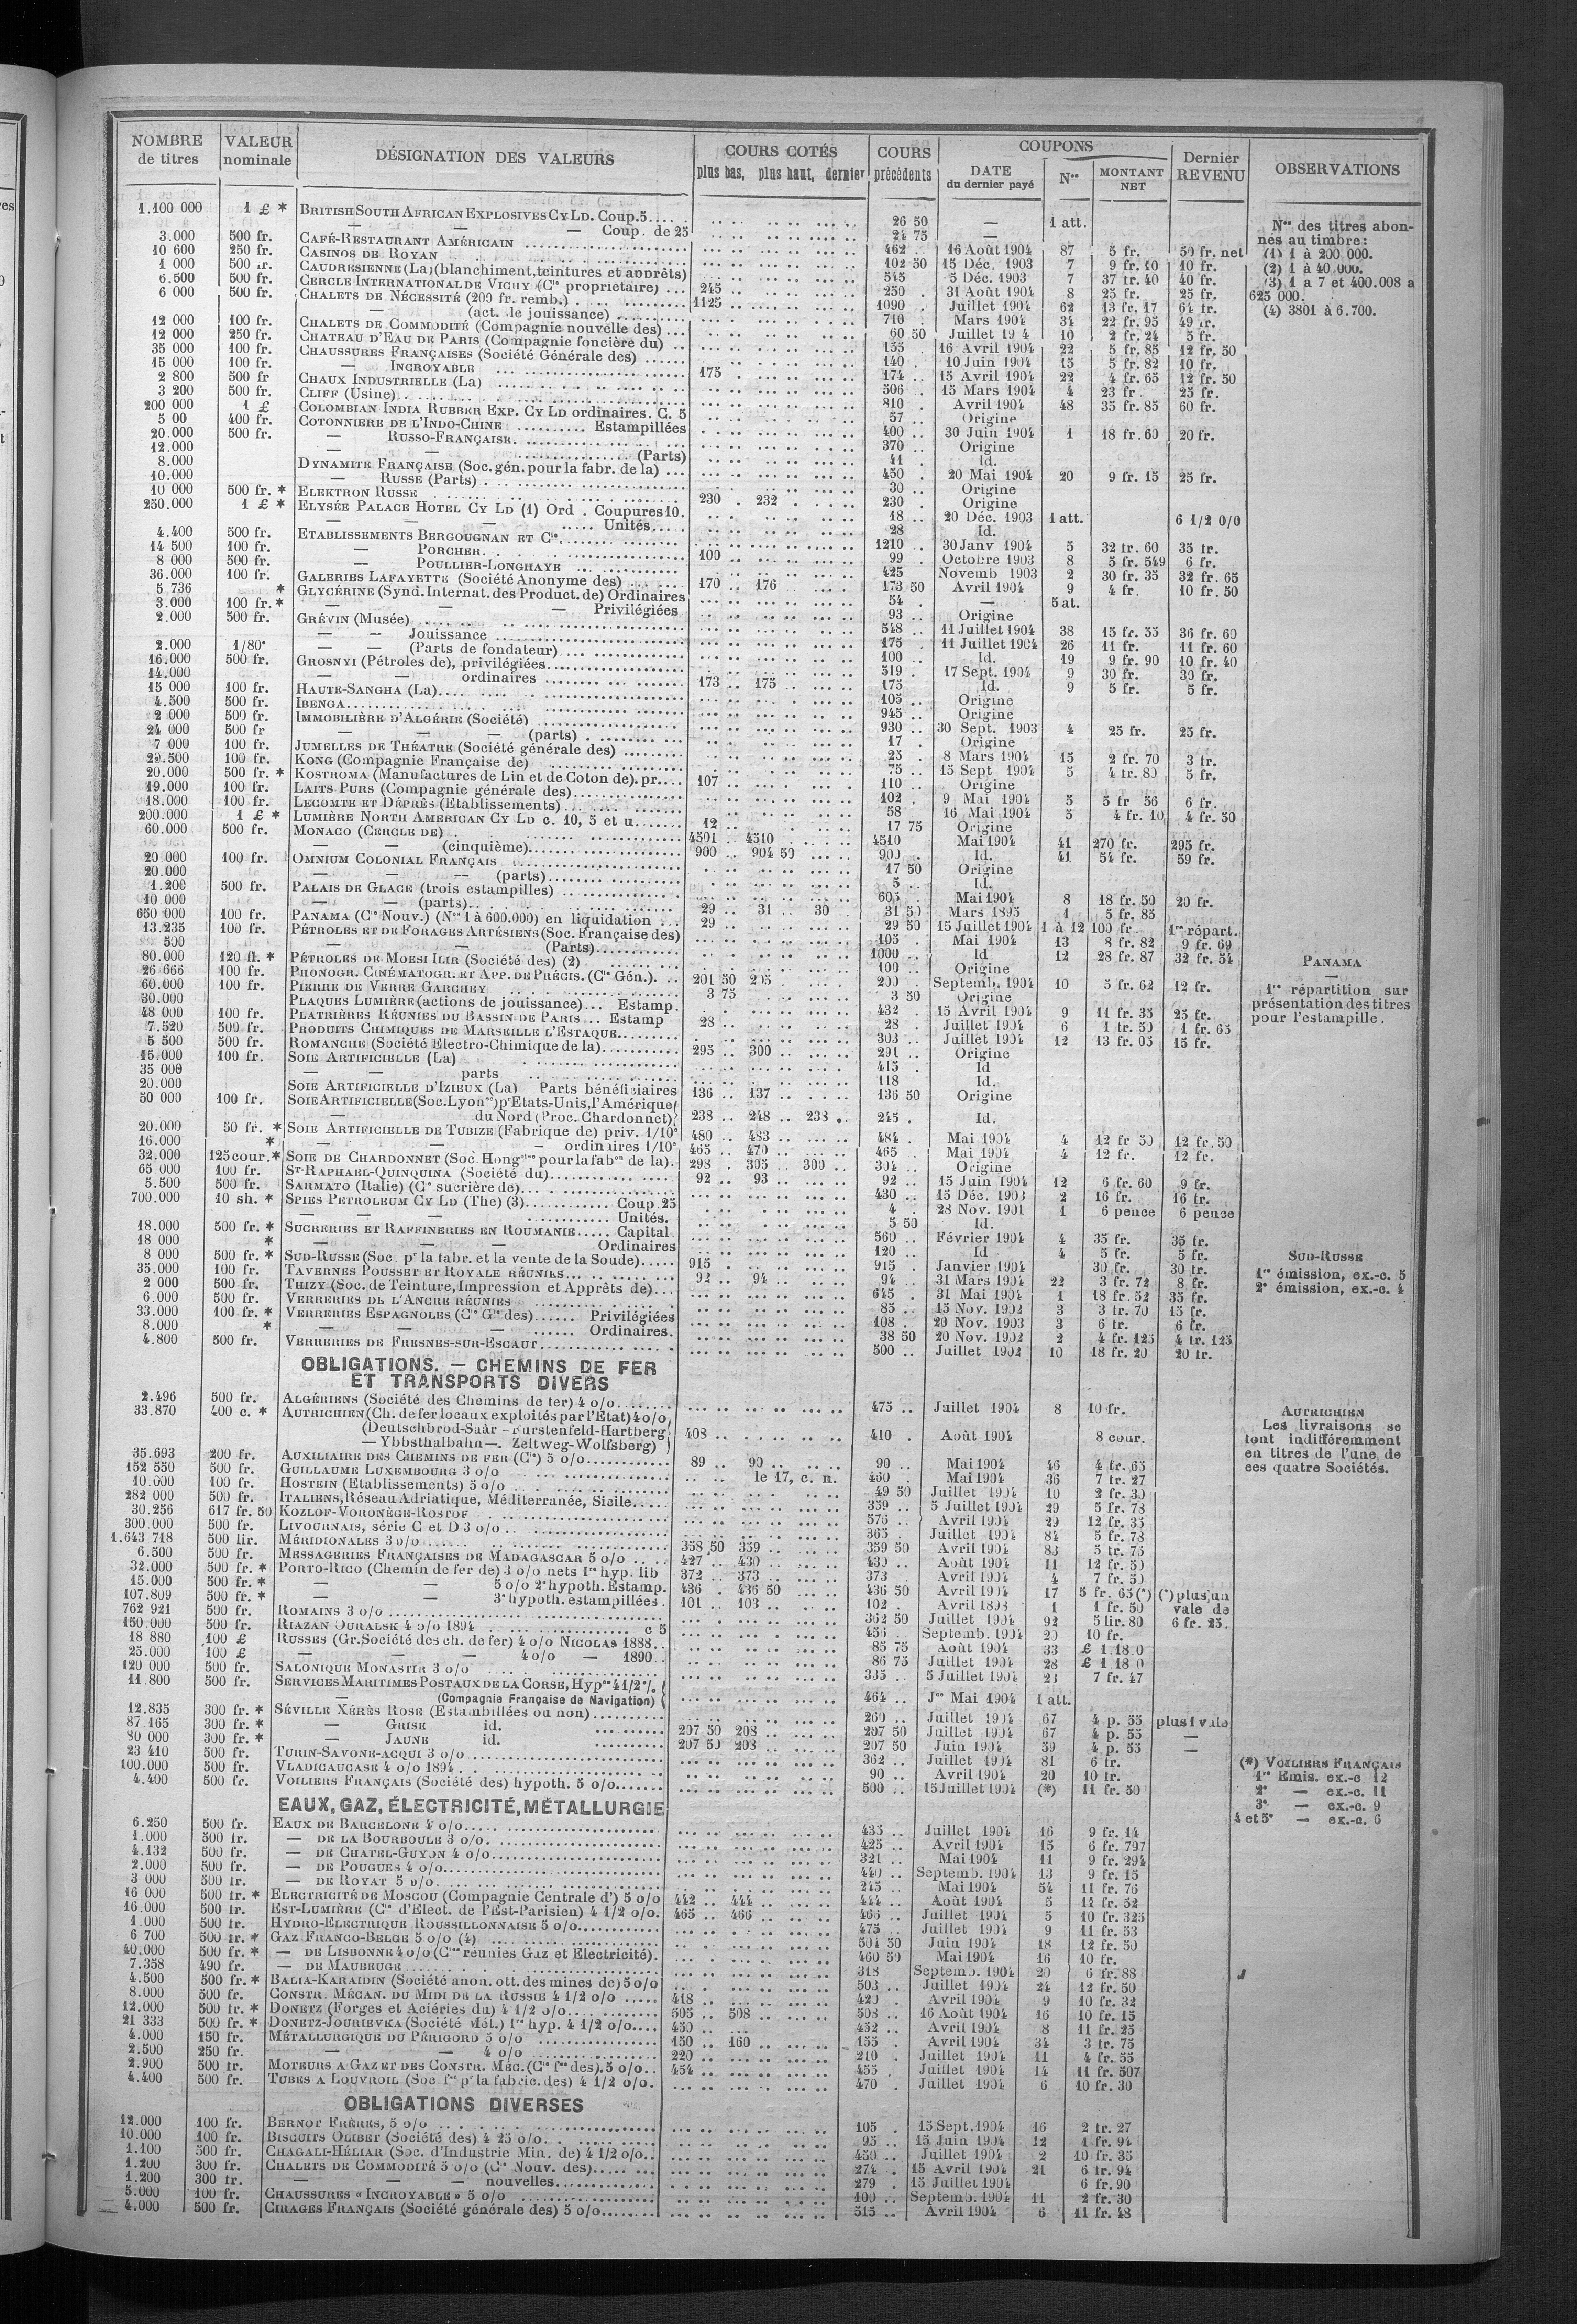 NOMBRE de titres | VALEUR nominale | DÉSIGNATION DES VALEURS | COURS COTÉS plus bas, plus haut, dernier | COURS précédents | COUPONS DATE du dernier payé | Nos | MONTANT NET | Dernier REVENU | OBSERVATIONS
1.100 000 1 £ * BRITISH SOUTH AFRICAN EXPLOSIVES CY LD. Coup. 5 26 50 — 1 att.
— — — Coup. de 25 24 75 —
3.000 500 fr. CAFÉ-RESTAURANT AMÉRICAIN 462 16 Août 1904 87 5 fr. 50 fr. net
10 600 250 fr. CASINOS DE ROYAN 102 50 15 Déc. 1903 7 9 fr. 10 10 fr.
1 000 500 fr. CAUDRESIENNE (La) (blanchiment, teintures et apprêts) 515 5 Déc. 1903 7 37 fr. 40 40 fr.
6.500 500 fr. CERCLE INTERNATIONAL DE VICHY (Cie propriétaire) 245 250 31 Août 1904 8 25 fr. 25 fr.
6 000 500 fr. CHALETS DE NÉCESSITÉ (200 fr. remb.) 1125 1090 Juillet 1904 62 13 fr. 17 64 fr.
— (act. de jouissance) 710 Mars 1904 34 22 fr. 95 49 fr.
12 000 100 fr. CHALETS DE COMMODITÉ (Compagnie nouvelle des) 60 50 Juillet 19 4 10 2 fr. 24 5 fr.
12 000 250 fr. CHATEAU D'EAU DE PARIS (Compagnie foncière du) 155 16 Avril 1904 22 5 fr. 85 12 fr. 50
35 000 100 fr. CHAUSSURES FRANÇAISES (Société Générale des) 140 10 Juin 1904 15 5 fr. 82 10 fr.
15 000 100 fr. — INCROYABLE 175 174 15 Avril 1904 22 4 fr. 65 12 fr. 50
2 800 500 fr CHAUX INDUSTRIELLE (La) 506 15 Mars 1904 4 23 fr. 25 fr.
3 200 500 fr. CLIFF (Usine) 810 Avril 1904 48 35 fr. 85 60 fr.
200 000 1 £ COLOMBIAN INDIA RUBBER EXP. CY LD ordinaires. C. 5 57 Origine
5 00 400 fr. COTONNIERE DE L'INDO-CHINE Estampillées 400 30 Juin 1904 1 18 fr. 60 20 fr.
20.000 500 fr. — RUSSO-FRANÇAISE 370 Origine
12.000 — — (Parts) 41 Id.
8.000 DYNAMITE FRANÇAISE (Soc. gén. pour la fabr. de la) 450 20 Mai 1904 20 9 fr. 15 25 fr.
10.000 — RUSSE (Parts) 30 Origine
10 000 500 fr. * ELEKTRON RUSSE 230 232 230 Origine
250.000 1 £ * ELYSÉE PALACE HOTEL CY LD (1) Ord. Coupures 10. 18 20 Déc. 1903 1 att. 6 1/2 0/0
— — — Unités 28 Id.
4.400 500 fr. ETABLISSEMENTS BERGOUGNAN ET Cie 1210 30 Janv 1904 5 32 fr. 60 35 fr.
14 500 100 fr. — PORCHER 100 99 Octobre 1903 8 5 fr. 549 6 fr.
8 000 500 fr. — POULLIER-LONGHAYE 425 Novemb 1903 2 30 fr. 35 32 fr. 65
36.000 100 fr. GALERIES LAFAYETTE (Société Anonyme des) 170 176 173 50 Avril 1904 9 4 fr. 10 fr. 50
5 736 * GLYCÉRINE (Synd. Internat. des Product. de) Ordinaires 54 — 5 at.
3.000 100 fr. * — — — Privilégiées 93 Origine
2.000 500 fr. GRÉVIN (Musée) 548 11 Juillet 1904 38 15 fr. 55 36 fr. 60
— — Jouissance 175 11 Juillet 1904 26 11 fr. 11 fr. 60
2.000 1/80e — — (Parts de fondateur) 100 Id. 19 9 fr. 90 10 fr. 40
16.000 500 fr. GROSNYI (Pétroles de), privilégiées 519 17 Sept. 1904 9 30 fr. 30 fr.
14.000 — — ordinaires 173 175 175 Id. 9 5 fr. 5 fr.
15 000 100 fr. HAUTE-SANGHA (La) 105 Origine
4.500 500 fr. IBENGA 945 Origine
2 000 500 fr. IMMOBILIÈRE D'ALGÉRIE (Société) 930 30 Sept. 1903 4 25 fr. 25 fr.
24 000 500 fr — — — (parts) 17 Origine
7 000 100 fr. JUMELLES DE THÉATRE (Société générale des) 25 8 Mars 1904 15 2 fr. 70 3 fr.
29.500 100 fr. KONG (Compagnie Française de) 75 15 Sept 1904 5 4 fr. 80 5 fr.
20.000 500 fr. * KOSTROMA (Manufactures de Lin et de Coton de). pr. 107 110 Origine
19.000 100 fr. LAITS PURS (Compagnie générale des) 102 9 Mai 1904 5 5 fr 56 6 fr.
18.000 100 fr. LECOMTE ET DÉPRÈS (Etablissements) 58 16 Mai 1904 5 4 fr. 10 4 fr. 50
200.000 1 £ * LUMIÈRE NORTH AMERICAN CY LD c. 10, 5 et u. 12 17 75 Origine
60.000 500 fr. MONACO (CERCLE DE) 4501 4510 4510 Mai 1904 41 270 fr. 295 fr.
— — (cinquième) 900 904 50 900 Id. 41 54 fr. 59 fr.
20 000 100 fr. OMNIUM COLONIAL FRANÇAIS 17 50 Origine
20.000 — — — (parts) 5 Id.
1.200 500 fr. PALAIS DE GLACE (trois estampilles) 605 Mai 1904 8 18 fr. 50 20 fr.
10 000 — — (parts) 31 50 Mars 1895 1 5 fr. 85
650 000 100 fr. PANAMA (Cie Nouv.) (Nos 1 à 600.000) en liquidation 29 31 30 29 50 15 Juillet 1904 1 à 12 100 fr. 1re répart.
13.235 100 fr. PÉTROLES ET DE FORAGES ARTÉSIENS (Soc. Française des) 29 105 Mai 1904 13 8 fr. 82 9 fr. 69
500 — — (Parts) 1000 Id 12 28 fr. 87 32 fr. 54
80.000 120 fl. * PÉTROLES DE MOESI ILIR (Société des) (2) 100 Origine
26 666 100 fr. PHONOGR. CINÉMATOGR. ET APP. DE PRÉCIS. (Cie Gén.). 201 50 205 200 Septemb. 1904 10 5 fr. 62 12 fr.
60.000 100 fr. PIERRE DE VERRE GARCHEY 3 75 3 50 Origine
30.000 PLAQUES LUMIÈRE (actions de jouissance) Estamp. 432 15 Avril 1904 9 11 fr. 35 25 fr.
48 000 100 fr. PLATRIÈRES RÉUNIES DU BASSIN DE PARIS Estamp 28 28 Juillet 1904 6 1 fr. 50 1 fr. 65
7.520 500 fr. PRODUITS CHIMIQUES DE MARSEILLE L'ESTAQUE 303 Juillet 1904 12 13 fr. 05 15 fr.
5 500 500 fr. ROMANCHE (Société Electro-Chimique de la) 295 300 291 Origine
15.000 100 fr. SOIE ARTIFICIELLE (La) 415 Id
35 000 — — parts 118 Id.
20.000 SOIE ARTIFICIELLE D'IZIEUX (La) Parts bénéficiaires 136 137 136 50 Origine
50 000 100 fr. SOIE ARTIFICIELLE (Soc. Lyonse) pr Etats-Unis, l'Amérique
— du Nord (Proc. Chardonnet) 238 248 238 245 Id.
20.000 50 fr. * SOIE ARTIFICIELLE DE TUBIZE (Fabrique de) priv. 1/10e 480 483 484 Mai 1904 4 12 fr 50 12 fr. 50
16.000 * — — — ordinaires 1/10e 465 470 465 Mai 1904 4 12 fr. 12 fr.
32.000 125 cour. * SOIE DE CHARDONNET (Soc. Hongoise pour la fabon de la). 298 305 300 304 Origine
65 000 100 fr. ST-RAPHAEL-QUINQUINA (Société du) 92 93 92 15 Juin 1904 12 6 fr. 60 9 fr.
5.500 500 fr. SARMATO (Italie) (Cie sucrière de) 430 15 Déc. 1903 2 16 fr. 16 fr.
700.000 10 sh. * SPIES PETROLEUM CY LD (The) (3) Coup 25 4 28 Nov. 1901 1 6 pence 6 pence
— — — Unités. 5 50 Id.
18.000 500 fr. * SUCRERIES ET RAFFINERIES EN ROUMANIE Capital 560 Février 1904 4 35 fr. 35 fr.
18 000 * — — — Ordinaires 120 Id 4 5 fr. 5 fr.
8 000 500 fr. * SUD-RUSSE (Soc. pr la fabr. et la vente de la Soude) 915 915 Janvier 1904 30 fr. 30 fr.
35.000 100 fr. TAVERNES POUSSET ET ROYALE RÉUNIES 92 94 94 31 Mars 1904 22 3 fr. 72 8 fr.
2 000 500 fr. THIZY (Soc. de Teinture, Impression et Apprêts de) 645 31 Mai 1904 1 18 fr. 52 35 fr.
6.000 500 fr. VERRERIES DE L'ANCRE RÉUNIES 85 15 Nov. 1902 3 3 fr. 70 15 fr.
33.000 100 fr. * VERRERIES ESPAGNOLES (Cie Gle des) Privilégiées 108 20 Nov. 1903 3 6 fr. 6 fr.
8.000 * — — — Ordinaires. 38 50 20 Nov. 1902 2 4 fr. 125 4 fr. 125
4.800 500 fr. VERRERIES DE FRESNES-SUR-ESCAUT 500 Juillet 1902 10 18 fr. 20 20 fr.
OBLIGATIONS. — CHEMINS DE FER
ET TRANSPORTS DIVERS
2.496 500 fr. ALGÉRIENS (Société des Chemins de fer) 4 o/o 475 Juillet 1904 8 10 fr.
33.870 400 c. * AUTRICHIEN (Ch. de fer locaux exploités par l'État) 4 o/o
(Deutschbrod-Saar - Furstenfeld-Hartberg
— Ybbsthalbahn —. Zeltweg-Wolfsberg) 408 410 Août 1904 8 cour.
35.693 200 fr. AUXILIAIRE DES CHEMINS DE FER (Cie) 5 o/o 89 90 90 Mai 1904 46 4 fr. 65
152 550 500 fr. GUILLAUME LUXEMBOURG 3 o/o le 17, c. n. 460 Mai 1904 36 7 fr. 27
10.000 100 fr. HOSTEIN (Etablissements) 5 o/o 49 50 Juillet 1904 10 2 fr. 30
282 000 500 fr. ITALIENS, Réseau Adriatique, Méditerranée, Sicile 359 5 Juillet 1904 29 5 fr. 78
30.256 617 fr. 50 KOZLOF-VORONÈGE-ROSTOF 576 Avril 1904 29 12 fr. 35
300.000 500 fr. LIVOURNAIS, série C et D 3 o/o 365 Juillet 1904 84 5 fr. 78
1.643 718 500 lir. MÉRIDIONALES 3 o/o 358 50 359 359 50 Avril 1904 83 5 fr. 75
6.500 500 fr. MESSAGERIES FRANÇAISES DE MADAGASCAR 5 o/o 427 430 430 Août 1904 11 12 fr. 50
32.000 500 fr. * PORTO-RICO (Chemin de fer de) 3 o/o nets 1re hyp. lib 372 373 373 Avril 1904 4 7 fr. 50
15.000 500 fr. * — — 5 o/o 2e hypoth. Estamp. 436 436 50 436 50 Avril 1904 17 5 fr. 65 (*) (*) plus un
107.809 500 fr. * — — 3e hypoth. estampillées 101 103 102 Avril 1898 1 1 fr. 50 vale de
762 921 500 fr. ROMAINS 3 o/o 362 50 Juillet 1904 92 5 lir. 80 6 fr. 25.
150.000 500 fr. RIAZAN OURALSK 4 o/o 1894 c 5 456 Septemb. 1904 20 10 fr.
18 880 100 £ RUSSES (Gr. Société des ch. de fer) 4 o/o NICOLAS 1888 85 75 Août 1904 33 £ 1.18 0
25.000 100 £ — — — 4 o/o — 1890 86 75 Juillet 1904 28 £ 1 18 0
120 000 500 fr. SALONIQUE MONASTIR 3 o/o 335 5 Juillet 1904 23 7 fr. 47
11.800 500 fr. SERVICES MARITIMES POSTAUX DE LA CORSE, Hypre 4 1/2 %
— (Compagnie Française de Navigation) 464 Jce Mai 1904 1 att.
12.835 300 fr. * SÉVILLE XÉRÈS ROSE (Estambillées ou non) 260 Juillet 1904 67 4 p. 55 plus 1 vale
87 165 300 fr. * — GRISE id. 207 50 208 207 50 Juillet 1904 67 4 p. 55 —
80 000 300 fr. * — JAUNE id. 207 50 208 207 50 Juin 1904 59 4 p. 55 —
23 410 500 fr. TURIN-SAVONE-ACQUI 3 o/o 362 Juillet 1904 81 6 fr.
100.000 500 fr. VLADICAUCASE 4 o/o 1894 90 Avril 1904 20 10 fr.
4.400 500 fr. VOILIERS FRANÇAIS (Société des) hypoth. 5 o/o 500 15 Juillet 1904 (*) 11 fr. 50
EAUX, GAZ, ÉLECTRICITÉ, MÉTALLURGIE
6.250 500 fr. EAUX DE BARCELONE 4 o/o 435 Juillet 1904 16 9 fr. 14
1.000 500 fr. — DE LA BOURBOULE 3 o/o 425 Avril 1904 15 6 fr. 797
4.132 500 fr. — DE CHATEL-GUYON 4 o/o 321 Mai 1904 11 9 fr. 294
2.000 500 fr. — DE POUGUES 4 o/o 440 Septemb. 1904 13 9 fr. 15
3 000 500 fr. — DE ROYAT 5 o/o 245 Mai 1904 54 11 fr. 76
16 000 500 fr. * ELECTRICITÉ DE MOSCOU (Compagnie Centrale d') 5 o/o 442 444 444 Août 1904 5 11 fr. 52
16.000 500 fr. EST-LUMIÈRE (Cie d'Elect. de l'Est-Parisien) 4 1/2 o/o. 465 466 466 Juillet 1904 5 10 fr. 325
1.000 500 fr. HYDRO-ELECTRIQUE ROUSSILLONNAISE 5 o/o 475 Juillet 1904 9 11 fr. 53
6 700 500 fr. * GAZ FRANCO-BELGE 5 o/o (4) 501 50 Juin 1904 18 12 fr. 50
40.000 500 fr. * — DE LISBONNE 4 o/o (Cies réunies Gaz et Electricité). 460 50 Mai 1904 16 10 fr.
7.358 490 fr. — DE MAUBEUGE 318 Septemb. 1904 20 6 fr. 88
4.500 500 fr. * BALIA-KARAIDIN (Société anon. ott. des mines de) 5 o/o 503 Juillet 1904 24 12 fr. 50
8.000 500 fr. CONSTR. MÉCAN. DU MIDI DE LA RUSSIE 4 1/2 o/o 418 420 Avril 1904 9 10 fr. 32
12.000 500 fr. * DONETZ (Forges et Aciéries du) 4 1/2 o/o 505 508 508 16 Août 1904 16 10 fr. 15
21 333 500 fr. * DONETZ-JOURIEVKA (Société Mét.) 1re hyp. 4 1/2 o/o 450 452 Avril 1904 8 11 fr. 25
4.000 150 fr. MÉTALLURGIQUE DU PÉRIGORD 5 o/o 150 160 155 Avril 1904 34 3 fr. 75
2.500 250 fr. — — 4 o/o 220 210 Juillet 1904 11 4 fr. 55
2.900 500 fr. MOTEURS A GAZ ET DES CONSTR. MÉC. (Cie fse des). 5 o/o 454 455 Juillet 1904 14 11 fr. 507
4.400 500 fr. TUBES A LOUVROIL (Soc fse pr la fabric. des) 4 1/2 o/o. 470 Juillet 1904 6 10 fr. 30
OBLIGATIONS DIVERSES
12.000 100 fr. BERNOT FRÈRES, 5 o/o 105 15 Sept. 1904 16 2 fr. 27
10.000 100 fr. BISCUITS OLIBET (Société des) 4 25 o/o 95 15 Juin 1904 12 1 fr. 94
1.100 500 fr. CHAGALI-HÉLIAR (Soc. d'Industrie Min. de) 4 1/2 o/o 450 Juillet 1904 2 10 fr. 35
1.200 300 fr. CHALETS DE COMMODITÉ 5 o/o (Cie Nouv. des) 274 15 Avril 1904 21 6 fr. 94
1.200 300 fr. — — — nouvelles 279 15 Juillet 1904 6 fr. 90
5.000 100 fr. CHAUSSURES « INCROYABLE » 5 o/o 100 Septemb. 1904 11 2 fr. 30
4.000 500 fr. CIRAGES FRANÇAIS (Société générale des) 5 o/o 515 Avril 1904 6 11 fr. 48
Nos des titres abonnés au timbre :
(1) 1 à 200 000.
(2) 1 à 40.000.
(3) 1 à 7 et 400.008 a
625 000.
(4) 3801 à 6.700.
PANAMA
—
1re répartition sur
présentation des titres
pour l'estampille.
SUD-RUSSE
1re émission, ex-c. 5
2e émission, ex-c. 4
AUTRICHIEN
Les livraisons se
font indifféremment
en titres de l'une de
ces quatre Sociétés.
(*) VOILIERS FRANÇAIS
1re Emis. ex-c 12
2e — ex-c. 11
3e — ex-c. 9
4 et 5e — ex-c. 6